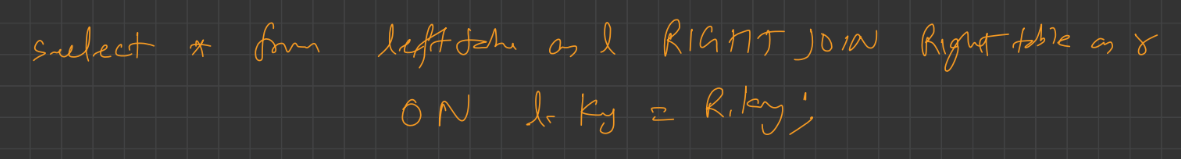 select * from left table as l RIGHT JOIN Right table as r
ON l. Key = R.key;